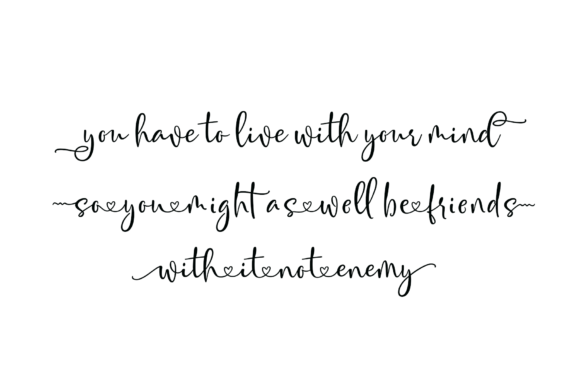 you have to live with your mind
so you might as well be friends
with it not enemy